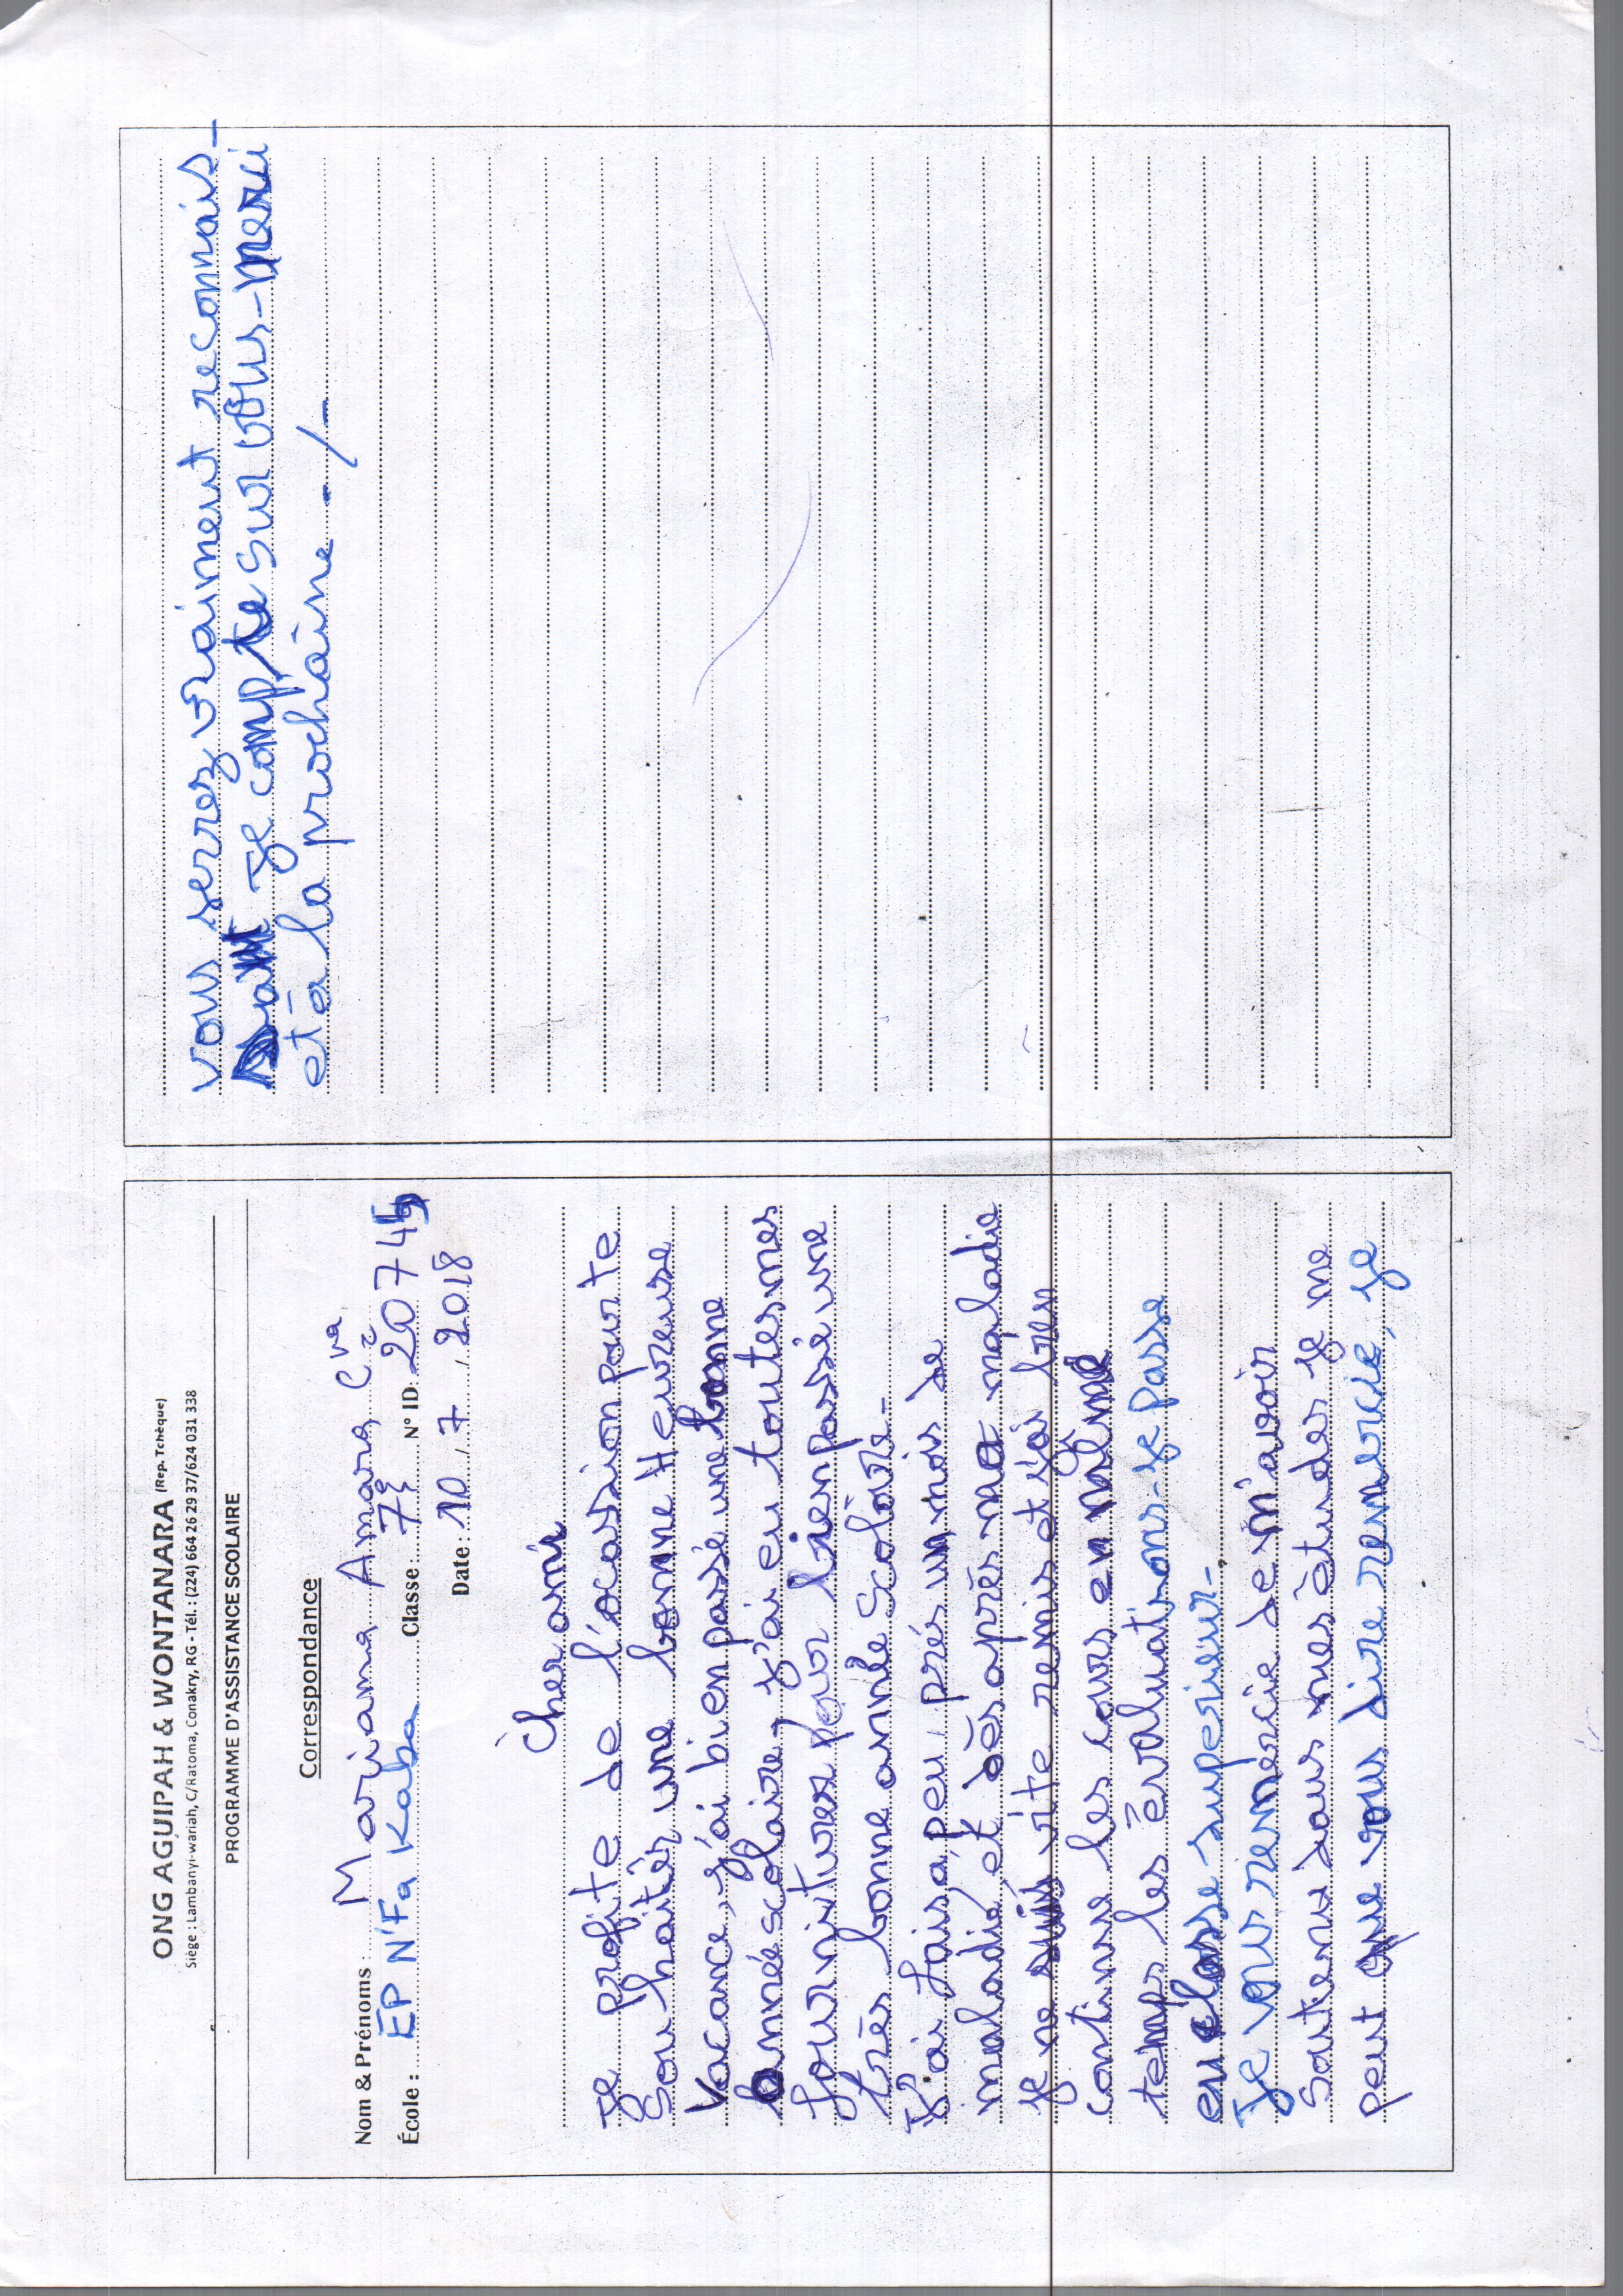 ONG AGUIPAH & WONTANARA (Rep. Tchèque)
Siège : Lambanyi-wariah, C/Ratoma, Conakry, RG - Tél. : (224) 664 26 29 37/624 031 338
PROGRAMME D'ASSISTANCE SCOLAIRE
Correspondance
Nom & Prénoms : Mariama Amara
École : EP N'Fa Kaba Classe : 7è N° ID: 20745
Date : 10 / 7 / 2018
Cher ami
Je profite de l'ocasion pour te
Souhaitèr une bonne Heureuse
Vacance, j'ai bien passé une bonne
année scolaire, j'ai eu toutes mes
fournitures pour bien passé une
très bonne année scolaire -
J'ai fais a peu près un mois de
maladie, et dès après ma maladie
je me suis vite remis et j'ai bien
continue les cours en même
temps les évaluations - je passe
en classe superieur -
Je vous remercie de m'avoir
Soutenu dans mes études je me
peut que vous dire remercie, je
vous serrez vraiment reconnais-
sant je compte sur vous - merci
et à la prochaine - / -